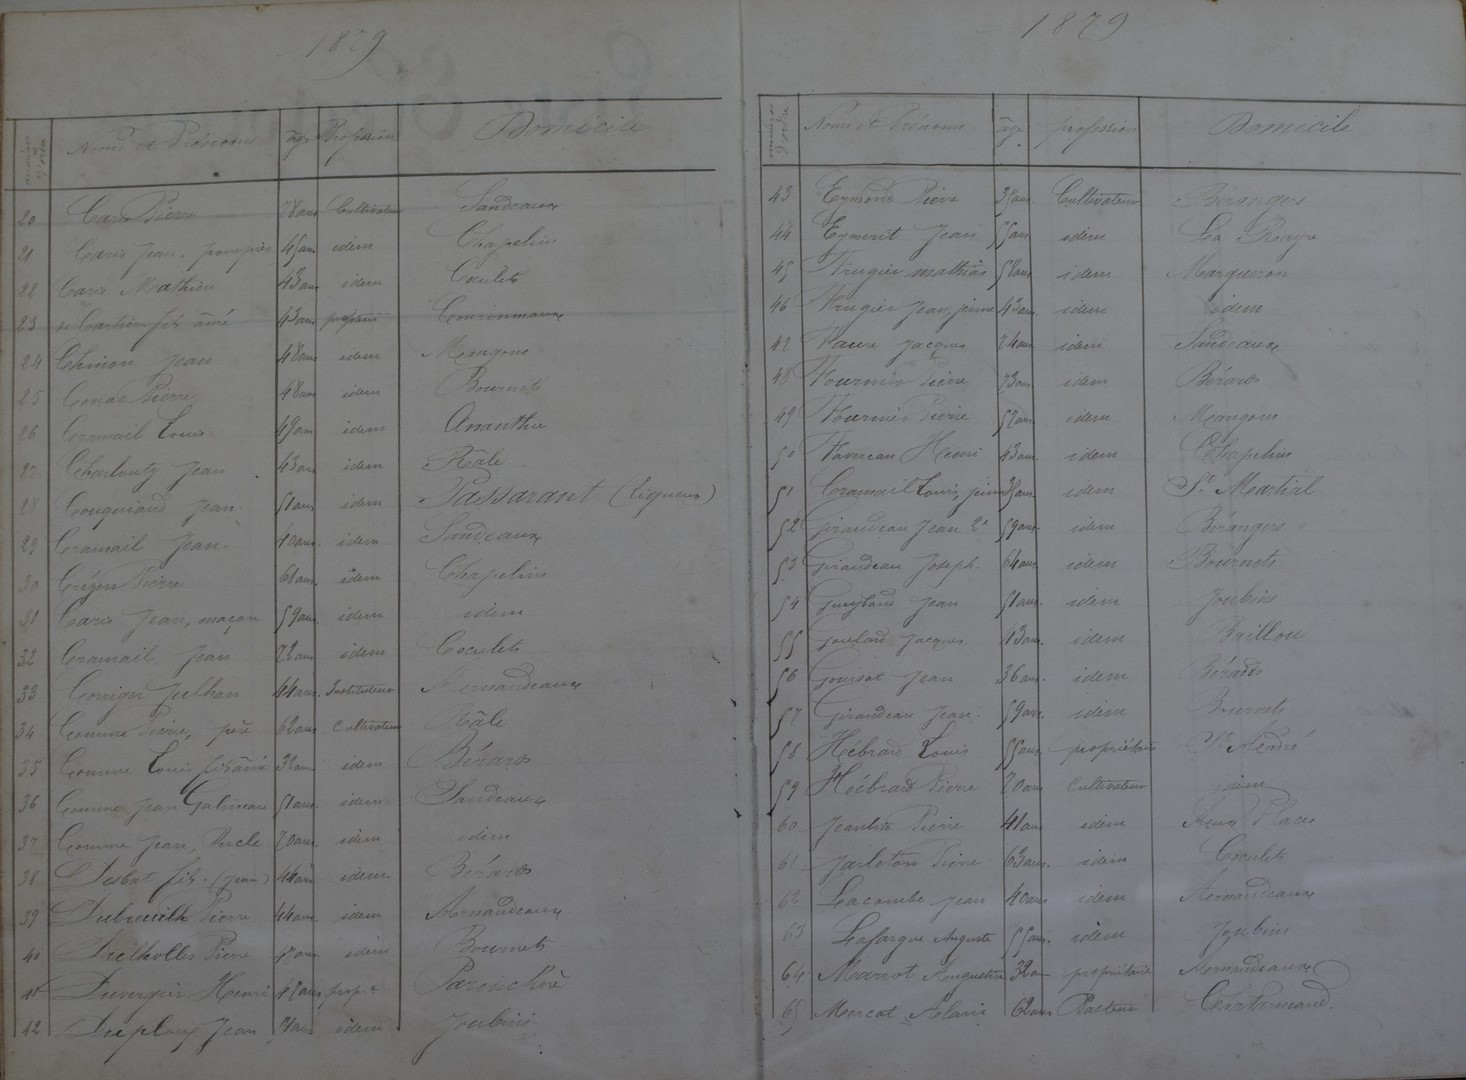 1879
Noms et Prénoms âge Profession Domicile
20 Caris Pierre 28 ans Cultivateur Sandeaux
21 Caris Jean 45 ans idem Chapelins
22 Caris Mathieu 43 ans idem Coculets
23 de fils aîné 43 ans
24 Chinon Jean 48 ans idem Mangons
25 Pierre 48 ans idem Bournets
26 Cramail Louis 49 ans idem Ananthie
27 Jean 43 ans idem Râle
28 Jean 51 ans idem Passarant (Ligueux)
29 Cramail Jean 40 ans idem Sandeaux
30 Pierre 61 ans idem Chapelins
31 Caris Jean, maçon 59 ans idem idem
32 Cramail Jean 72 ans idem Coculets
33 44 ans Instituteur Arnaudeaux
34 Comme Pierre, père 62 ans cultivateur Râle
35 Comme Louis fils aîné 32 ans idem Bérards
36 Comme Jean Galineau 51 ans idem Sandeaux
37 Comme Jean, Oncle 70 ans idem idem
38 Desbat fils (Jean) 44 ans idem Bérards
39 Dubreuilh Pierre 44 ans idem Arnaudeaux
40 Pierre 47 ans idem Bournets
41 Duvergier Henri propre Parenchère
42 Duploux Jean 51 ans idem Joubins
1879
Noms et Prénoms âge profession Domicile
43 Eymond Pierre Cultivateur Bérangers
44 Eymerit Jean 55 ans idem La Raye
45 Frugier mathias 58 ans idem Margueron
46 Frugier Jean, jeune 43 ans idem idem
47 Faure Jacques 74 ans idem
48 Fournier Pierre 73 ans idem Bérards
49 Fournier Pierre 52 ans idem Mangons
50 Favereau Henri 43 ans idem Chapelins
51 Cramail Louis, jeune idem St Martial
52 Giraudeau Jean 2e 59 ans idem Bérangers
53 Giraudeau Joseph 64 ans idem Bournets
54 Jean 51 ans idem Joubins
55 Goulard Jacques 43 ans idem
56 Goursat Jean 36 ans idem Bérards
57 Giraudeau Jean 59 ans idem Bournets
58 Hébrard Louis 55 ans propriétaire St André
59 Hébrard Pierre 20 ans Cultivateur idem
60 Pierre 41 ans idem
61 Jarleton Pierre 63 ans idem Coculets
62 Lacombe Jean 40 ans idem Arnaudeaux
63 Lafargue Auguste 55 ans idem Joubins
64 Marrot Augustin 32 an propriétaire Arnaudeaux
65 Mercat Alain 62 ans Pasteur